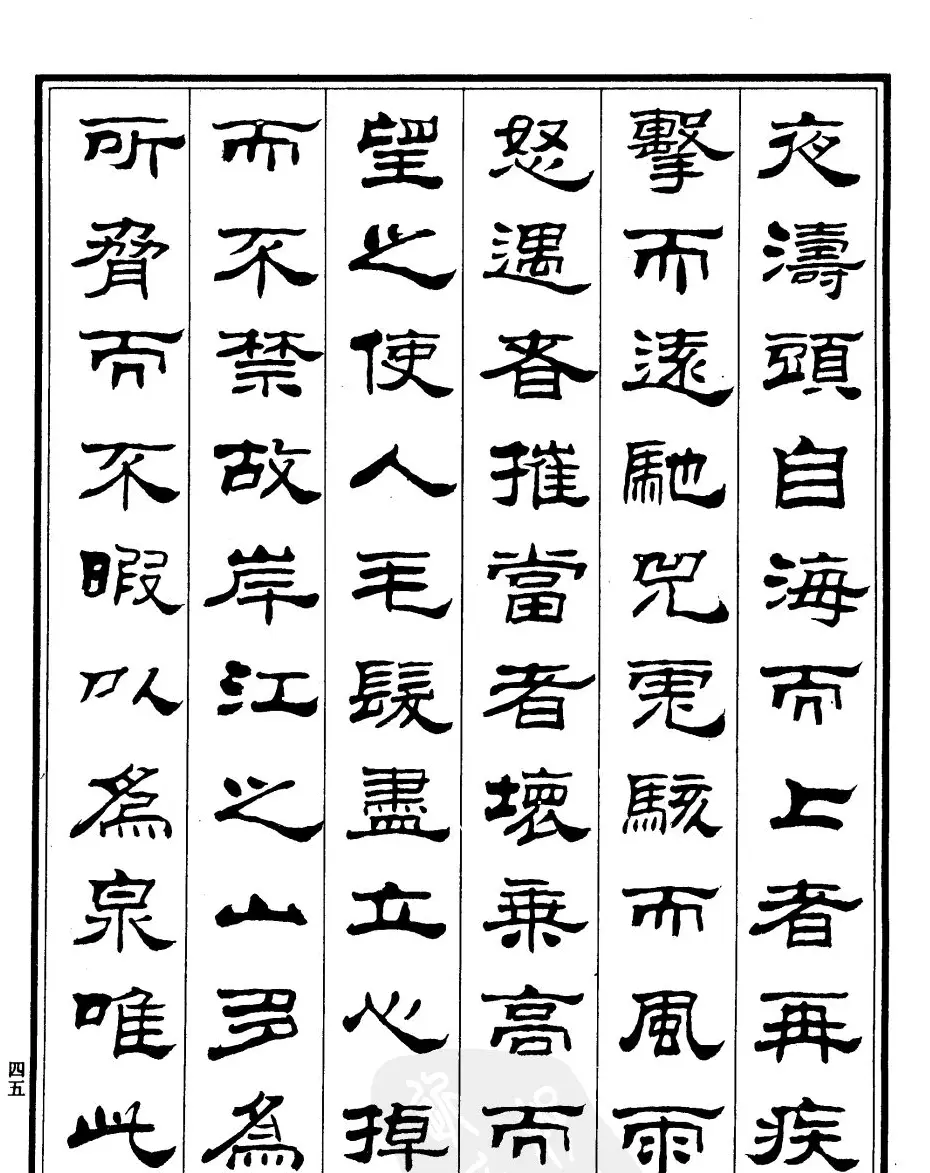 夜濤頭自海而上者再疾
擊而遠馳兕虎駭而風雨
怒遇者摧當者壞乗高而
望之使人毛髮盡立心掉
而不禁故岸江之山多為
所脅而不暇以為泉唯此
四五